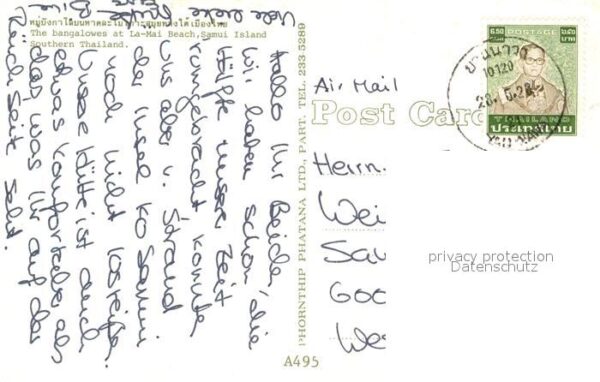 หมู่บังกาโลบนหาดละไม เกาะสมุยทางใต้เมืองไทย
The bangalowes at La-Mai Beach, Samui Island
Southern Thailand.
Hallo Ihr Beide!
Wir haben schon die
Hälfte unserer Zeit
rumgebracht, konnte
uns aber v. Strand
der Insel Ko Samui
noch nicht
Unsere Hütte ist auch
etwas komfortabler als
das, was Ihr auf der
Rückseite seht.
Viele liebe
Grüße
PHORNTHIP PHATANA LTD., PART. TEL. 233 5289
A495
Air Mail
Post Card
Herrn.
Wei
Sau
600
We
6.50
POSTAGE
๖.๕๐
บาท
THAILAND
ประเทศไทย
10120
28. 5. 28
privacy protection
Datenschutz